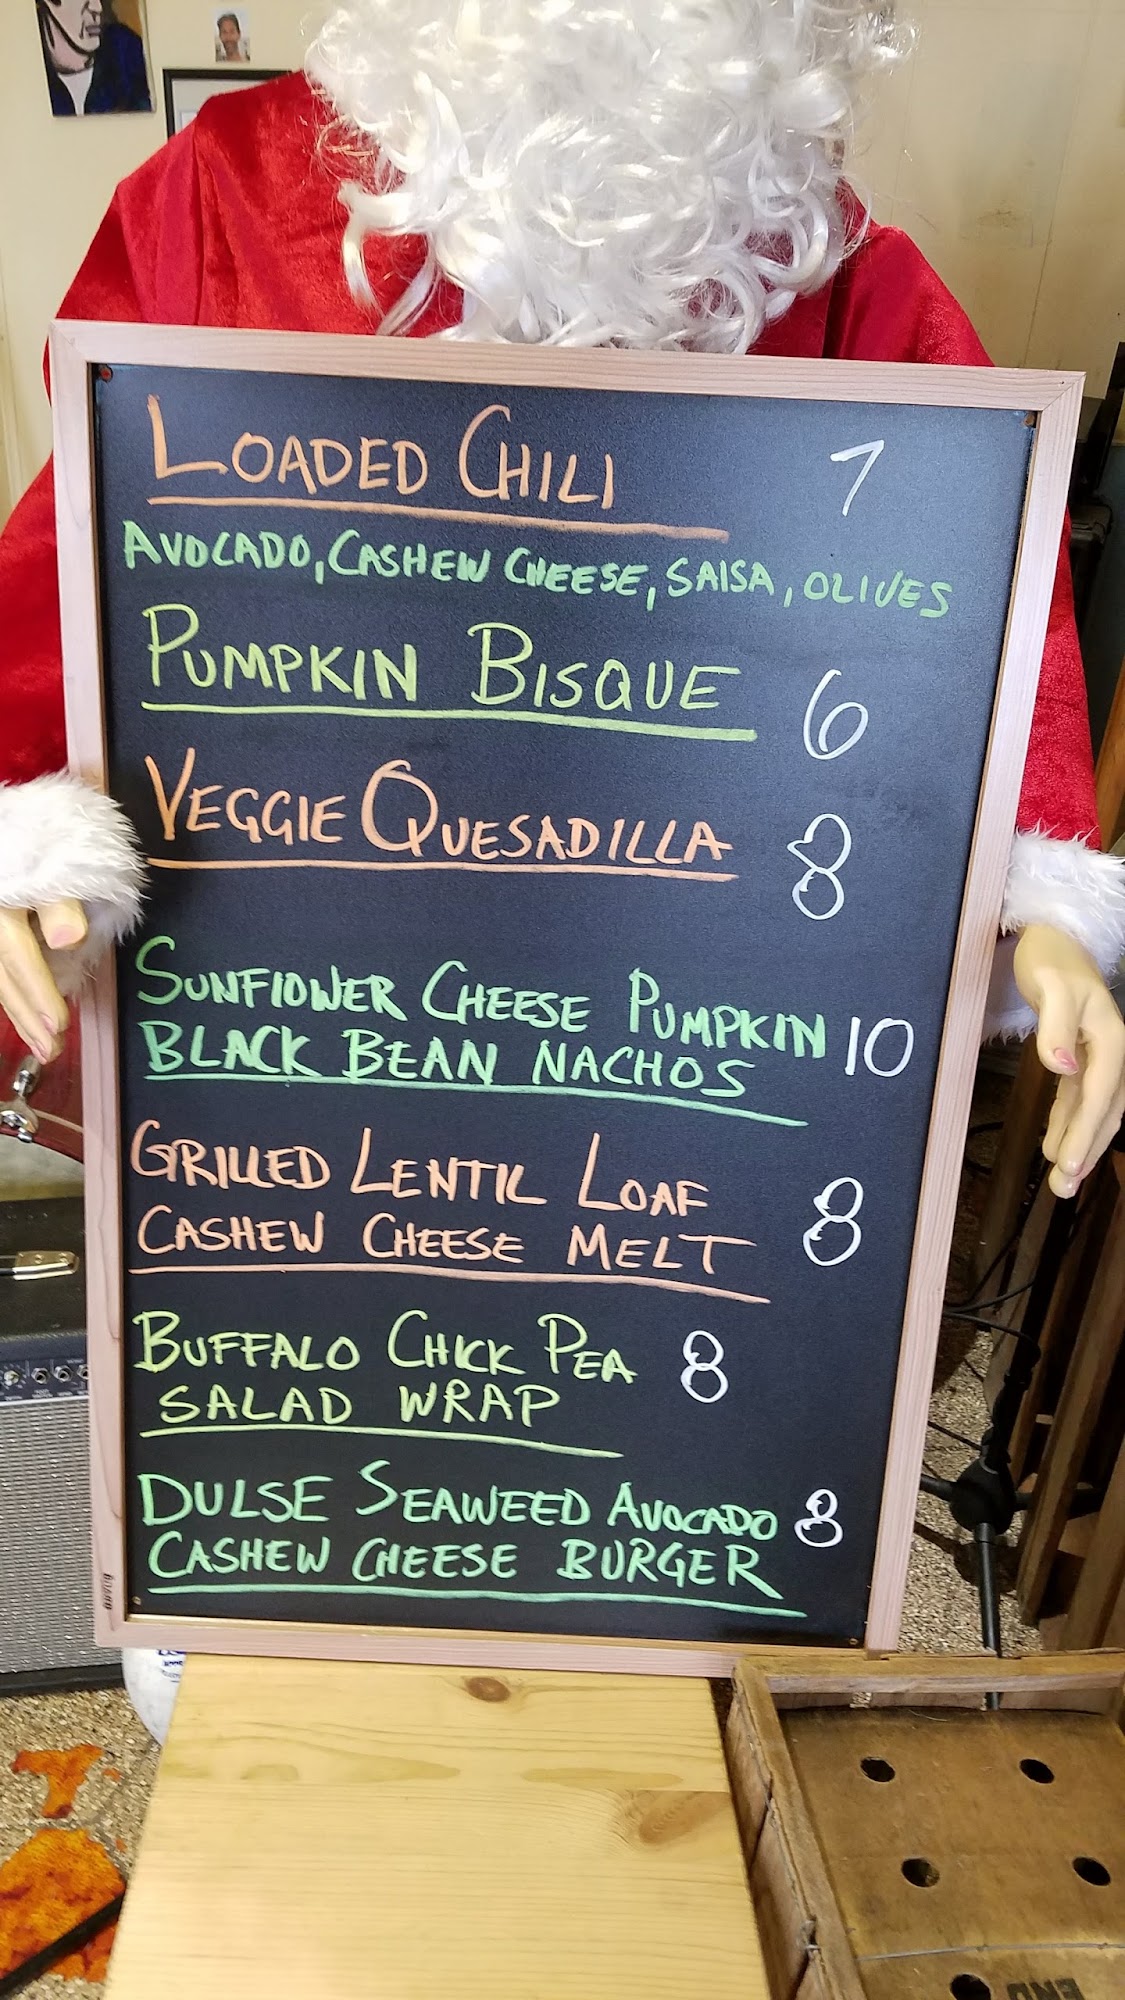 LOADED CHILI 7
AVOCADO, CASHEW CHEESE, SALSA, OLIVES
PUMPKIN BISQUE 6
VEGGIE QUESADILLA 8
SUNFLOWER CHEESE PUMPKIN 10
BLACK BEAN NACHOS
GRILLED LENTIL LOAF
CASHEW CHEESE MELT 8
BUFFALO CHICK PEA 8
SALAD WRAP
DULSE SEAWEED AVOCADO 8
CASHEW CHEESE BURGER